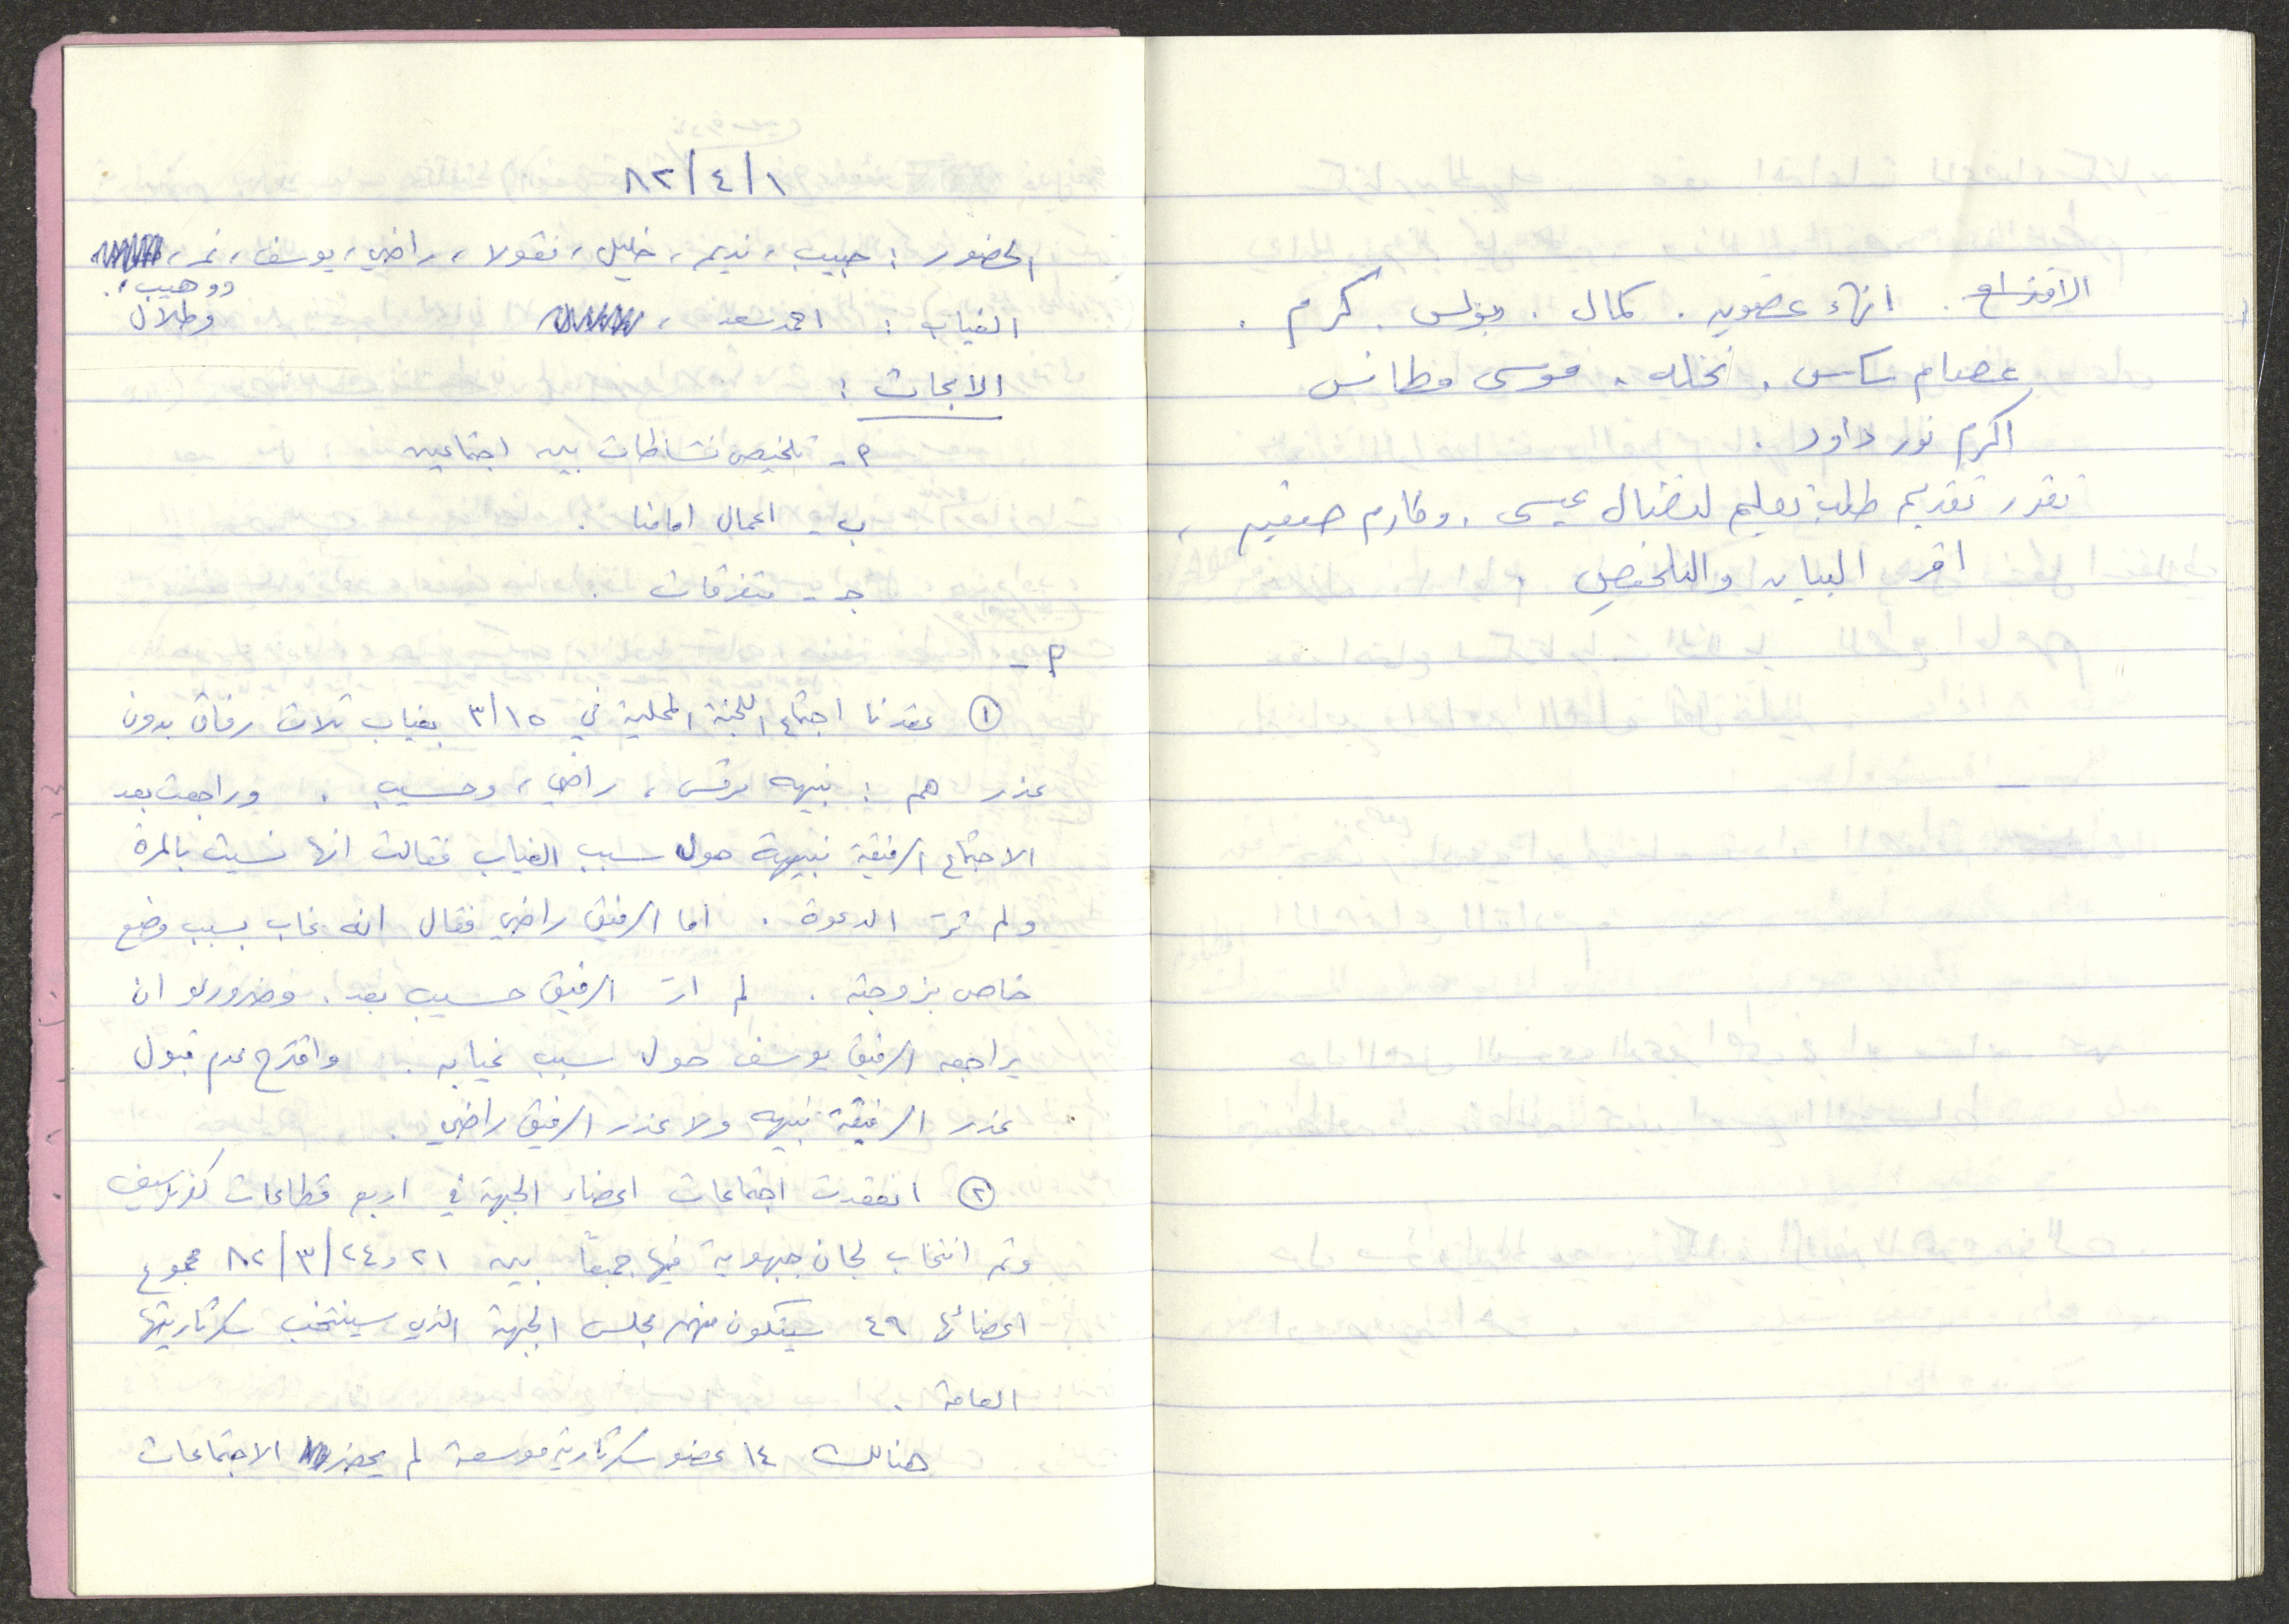 الاقتراع . انهاء عضوية . كمال . بولس . كرم .
عصام ساس . نخله . موسى مطانس
اكرم نور داود .
تقرر تقديم طلب تعليم لنضال عيسى . وكارم
اقر البيان والتلخيص .
٨٢/٤/١
الحضور : حبيب ، نديم ، خليل ، نقولا ، راضي ، يوسف ، نمر ،
ووهيب .
الغياب : احمد سعد ، وطلال
الابحاث :
أ - تلخيص نشاطات بين اجتماعين
ب - اعمال امامنا .
ج - متفرقات .
أ -
① عقدنا اجتماع اللجنة المحلية في ٣/١٥ بغياب ثلاث رفاق بدون
عذر هم : نبيهه مرقس ، راضي ، وحسيب . وراجعت بعد
الاجتماع الرفيقة نبيهة حول سبب الغياب فقالت انها نسيت بالمرة
ولم ترَ الدعوة . اما الرفيق راضي فقال انه غاب بسبب وضع
خاص بزوجته . لم ارَ الرفيق حسيب بعد . وضروري ان
يراجعه الرفيق يوسف حول سبب غيابه . واقترح عدم قبول
عذر الرفيقة نبيهه ولا عذر الرفيق راضي .
② انعقدت اجتماعات اعضاء الجبهة في اربع قطاعات كفرياسيف
وتم انتخاب لجان جبهوية فيها جميعاً بين ٢١ و ٨٢/٣/٢٤ مجموع
اعضائها ٤٩ سيتكون منهم مجلس الجبهة الذي سينتخب سكرتاريتها
العامة .
هنالك ١٤ عضو سكرتارية موسعة لم يحضر الاجتماعات